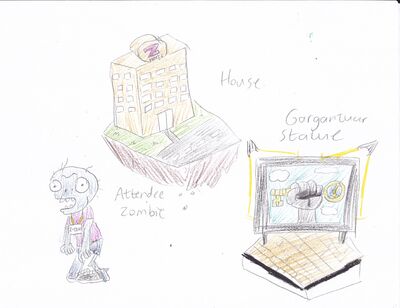 Z
House
Gargantuar
statue
Attendee
Zombie